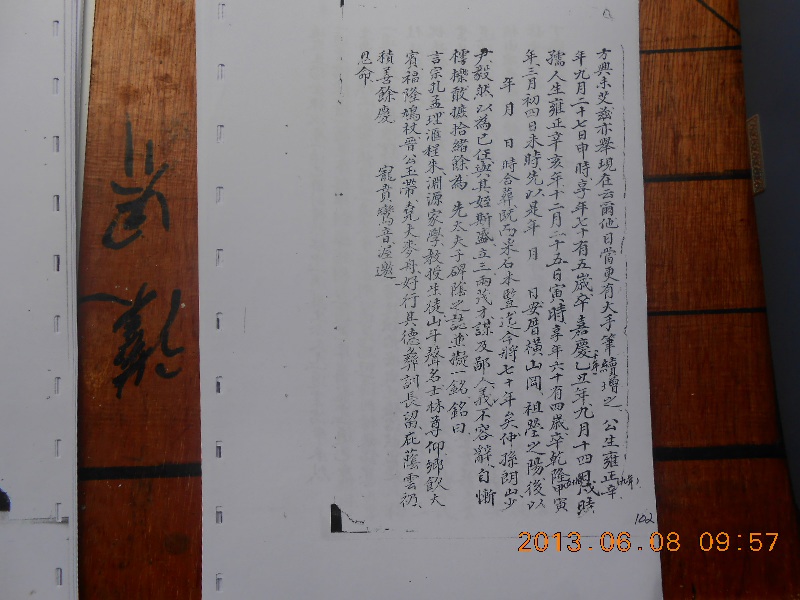 方興未艾茲亦舉現在云爾他日當更有大手筆續增之 公生雍正辛
年九月二十七日申時享年七十有五歲卒嘉慶乙丑年九月十四日戌時
孺人生雍正辛亥年十二月二十五日寅時享年六十有四歲卒乾隆甲寅
年三月初四日未時先以是年 月 日安厝橫山岡 祖塋之陽後以
年 月 日 時合葬既而采石未豎迄今將七十年矣仲孫朗山少
尹毅然以為己任與其姪斯盛立三兩茂才謀及鄙人義不容辭自慚
樗櫟散摭拾緒餘為 先太夫子碑蔭之誌並擬一銘銘曰
言宗孔孟理滙程朱淵源家學教授生徒山斗聲名士林尊仰鄉飲大
賓福隆鳩杖晉公玉帶堯夫麥舟好行其德彝訓長留庇蔭雲礽
積善餘慶 寵賁鸞音渥邀
恩命
102
2013.06.08 09:57